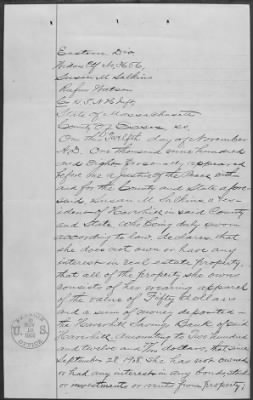 Eastern Div
Widow Ctf No.
Susan M. Watson
Rufus Watson
Co. N.H. Inf
State of Massachusetts
County of Essex ss,
On this Twelfth day of November
A.D. One thousand nine hundred
and Eighteen personally appeared
before me a Justice of the Peace within
and for the County and State afore-
said, Susan M. a resi-
dent of Haverhill in said County
and State, who being duly sworn
according to law declares that
she does not own or have any
interest in real estate property,
that all of the property she owns
consists of her wearing apparel
of the value of Fifty dollars
and a sum of money deposited in
the Haverhill Savings Bank of said
Haverhill amounting to Two hundred
and twelve and dollars, that since
September 28, 1908 she has not owned
or had any interest in any bonds, stock
or investments or rents from property,
U S
OFFICE